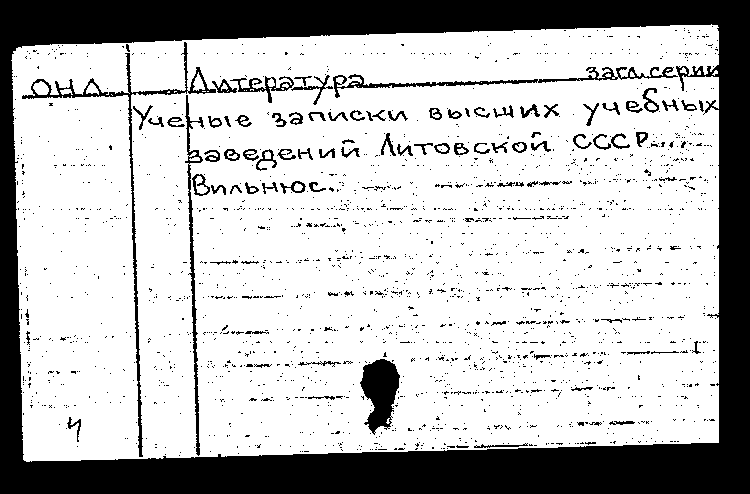 ОНЛ Литература загл. серии
Ученые записки высших учебных
заведений Литовской СССР....
Вильнюс.
ч